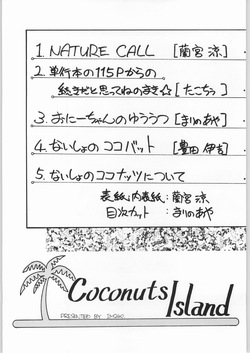 1. NATURE CALL [蘭宮 涼]
2. 単行本の115Pからの
続きだと思ってねのまき☆[たこちう]
3. おにーちゃんのゆううつ[まりのあや]
4. ないしょのココバット[豊田 伊吉]
5. ないしょのココナッツについて
表紙、内表紙:蘭宮 涼
目次カット:まりのあや
Coconuts Island
PRESENTED BY